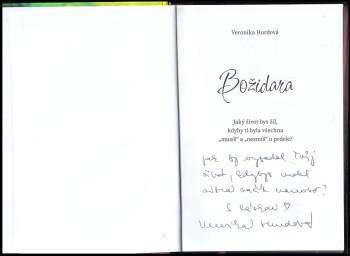 Veronika Hurdová
Božidara
Jaký život bys žil,
kdyby ti byla všechna
„musíš“ a „nesmíš“ u prdele?
Jak by vypadal Tvůj
život, kdybys mohl
začít nanovo?
S láskou ♡
Veronika Hurdová